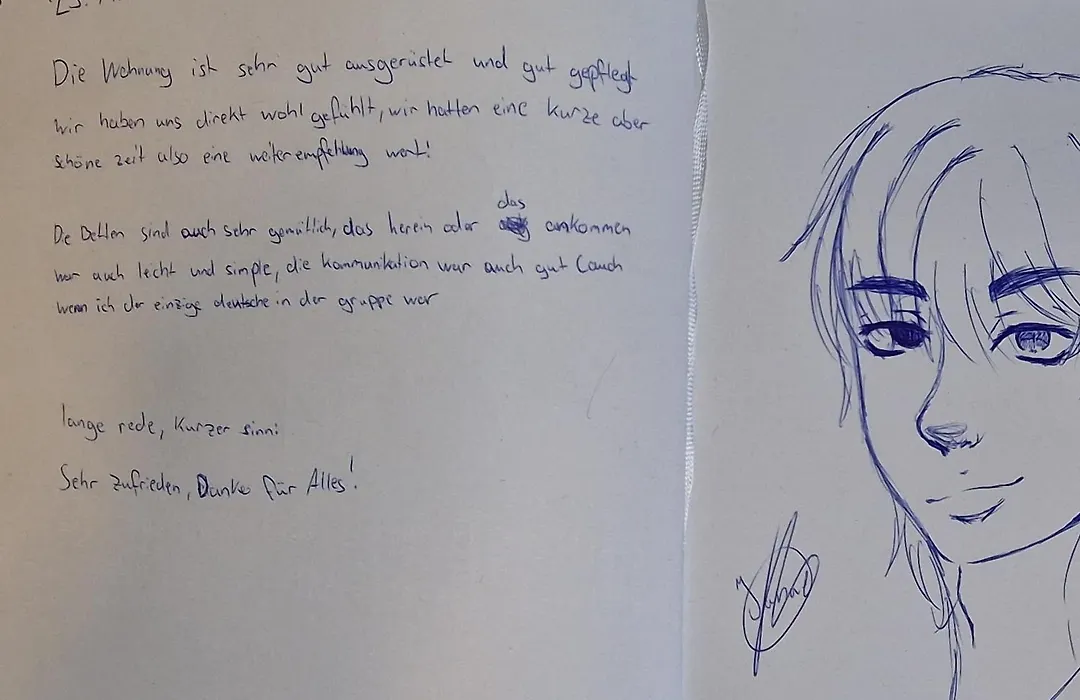 Die Wohnung ist sehr gut ausgerüstet und gut gepflegt
wir haben uns direkt wohl gefühlt, wir hatten eine kurze aber
schöne zeit also eine weiterempfehlung wert!
De Betten sind auch sehr gemütlich, das herein oder das ankommen
war auch leicht und simple, die kommunikation war auch gut (auch
wenn ich der einzige deutsche in der gruppe war
lange rede, kurzer sinn:
Sehr zufrieden, Danke für Alles!